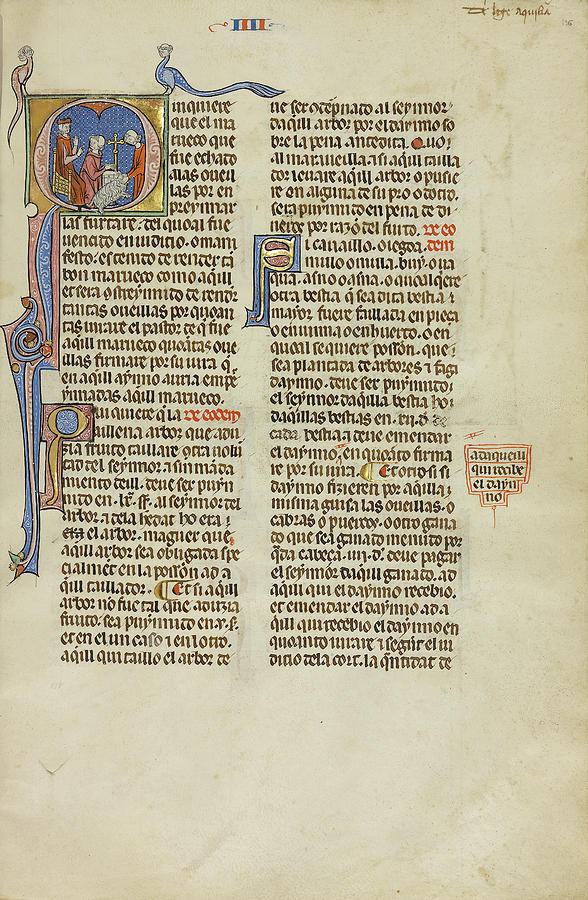 IIII
De lege aquilia
Quinquiere
que el ma
rueco que
fue echado
alas ouell
as por en
preynnar
las furtare. del qual fue
uencido en iudicio. o mani
festo. es tenido de render ta
bon marueco como aquill
et sera costreynnido de rendr
tantas ouellas por quan
tas iurare el pastor de q̃ fue
aquill marueco. quãtas oue
llas firmare por su iura q̃
en aquill aynno auria empr
eynnadas aquill marueco.
Qui quiere q̃ la De eodem
aillena arbor que adu
zia fruito taillare. otra nolũ
tad del seynnor. a sin manda
miento deill. deue ser puyn
nido en .lx. ss. al seynnor del
arbor. et dela hedat ho era
el arbor. maguer que
aquill arbor sea obligada spe
cialmẽt en la possiõ ad a
quill taillador. Et si aquill
arbor no fue tal que aduzia
fruito. sea puynnido en .v. ss.
et en el un caso et en lotro.
aquill qui taillo el arbor de
ue ser cõdẽpnado al seynnor
daquill arbor por el daynno so
bre la pena antedita. Quo
al marauella. si aquill tailla
dor leuare aquill arbor o pusie
re en alguna de su pro o docio.
sera puynnido en pena de di
nero por razõ del furto. De eo
Si cauaillo. o iegoa. dem
mullo o mula. buy. o ua
qua. asno o asna. o qual q̃ere
otra bestia q̃ sea dita bestia
mayor fuere faillada en pieça
o en uinna o en huerto. o en
qual se quiere possiõn. que
sea plantada de arbores et faga
daynno. deue ser puynnido
el seynnor daquilla bestia ho
daquillas bestias en .xii. d.
cada bestia et deue emendar
el daynno. en quãto firma
re por su iura. Et otrossi si
daynno fizieren por aquilla
misma guisa las ouellas. o
cabras o puercos. o otro gana
do que sea ganado menudo por
q̃da cabeça .iii. d. deue pagar
el seynnor daquill ganado. ad
aqui el daynno recebio.
et emendar el daynno ad a
quill qui recebio el daynno en
quanto iurare et segũt el iu
dicio dela cort. la q̃ntidat de
adaqueill
qui recebe
el dayn
no